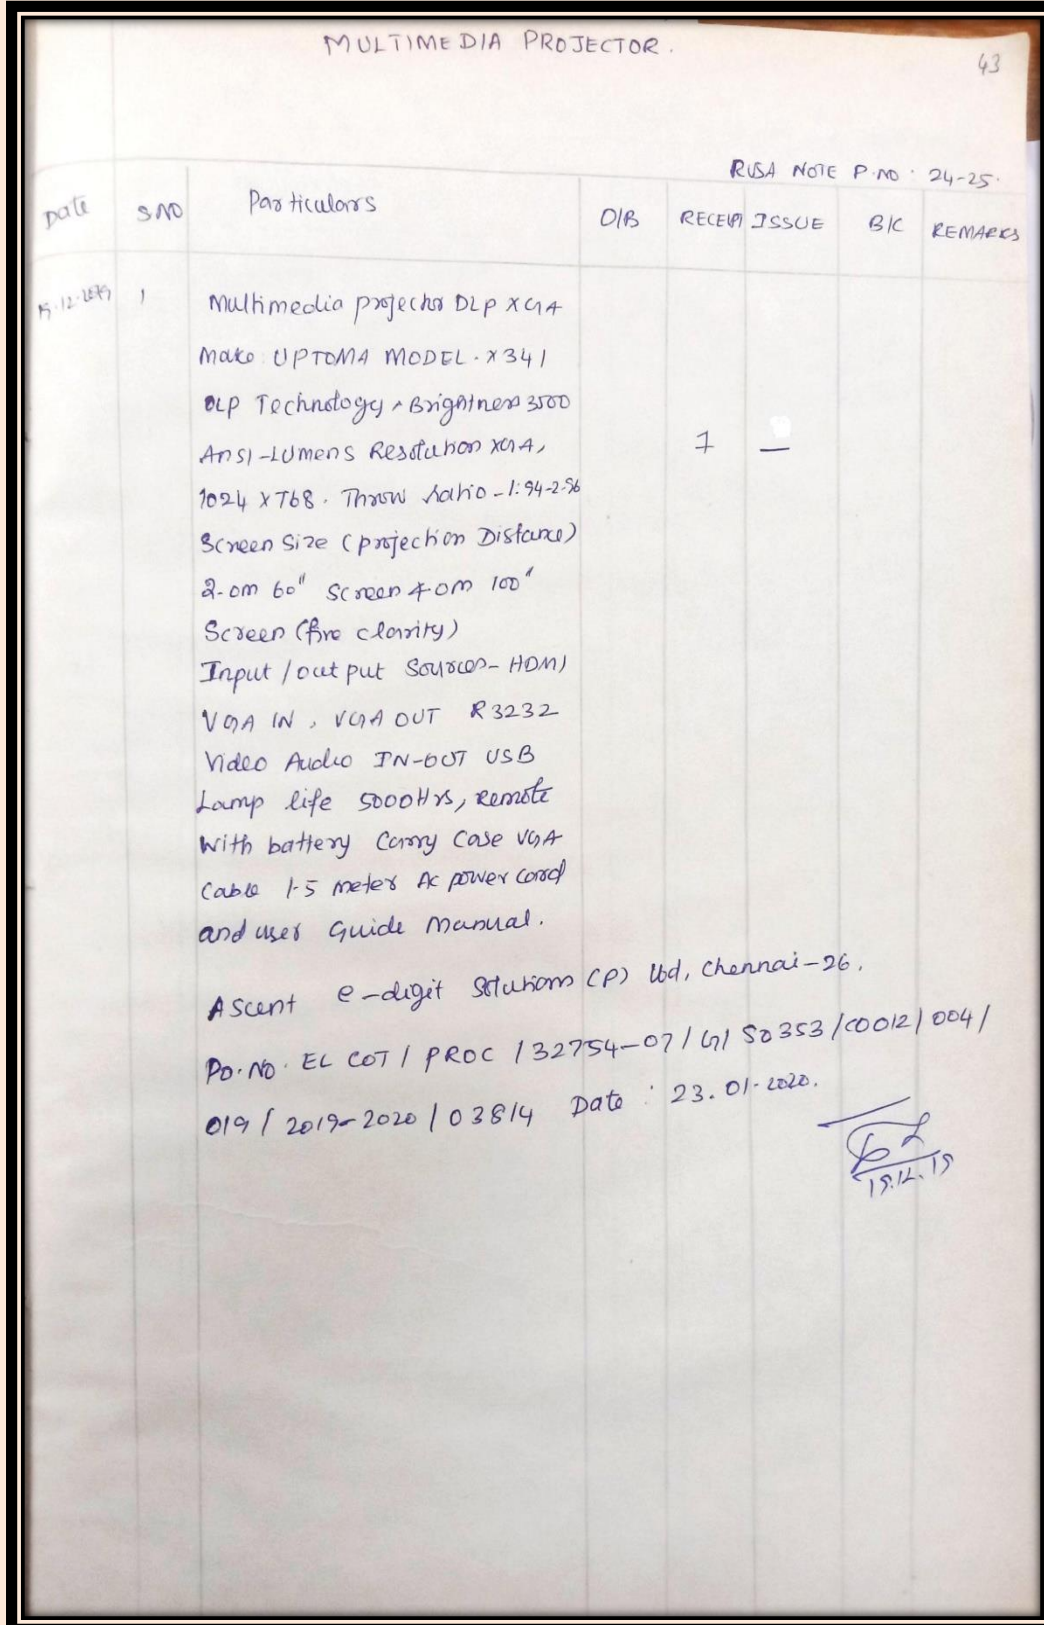 MULTIMEDIA PROJECTOR.
43
RUSA NOTE P.NO. 24-25.
Date S.NO Particulars O/B RECEIPT ISSUE B/C REMARKS
19.12.2019 1 Multimedia projector DLP XGA
Make: UPTOMA MODEL. X341
DLP Technology, Brightness 3500
Ansi-Lumens Resolution XGA, 1 —
1024 X 768. Throw ratio - 1.94-2.96
Screen Size (projection Distance)
2.0m 60" Screen 4.0m 100"
Screen (fine clarity)
Input / output Sources - HDMI
VGA IN, VGA OUT R3232
Video Audio IN-OUT USB
Lamp life 5000Hrs, Remote
With battery Carry Case VGA
Cable 1.5 meter Ac power cord
and user Guide Manual.
Ascent e-digit Solutions (P) Ltd, Chennai-26.
Po.No. EL COT / PROC / 32754-07 / G / S0353 / C0012 / 004 /
019 / 2019-2020 / 03814 Date : 23.01.2020.
19.12.19